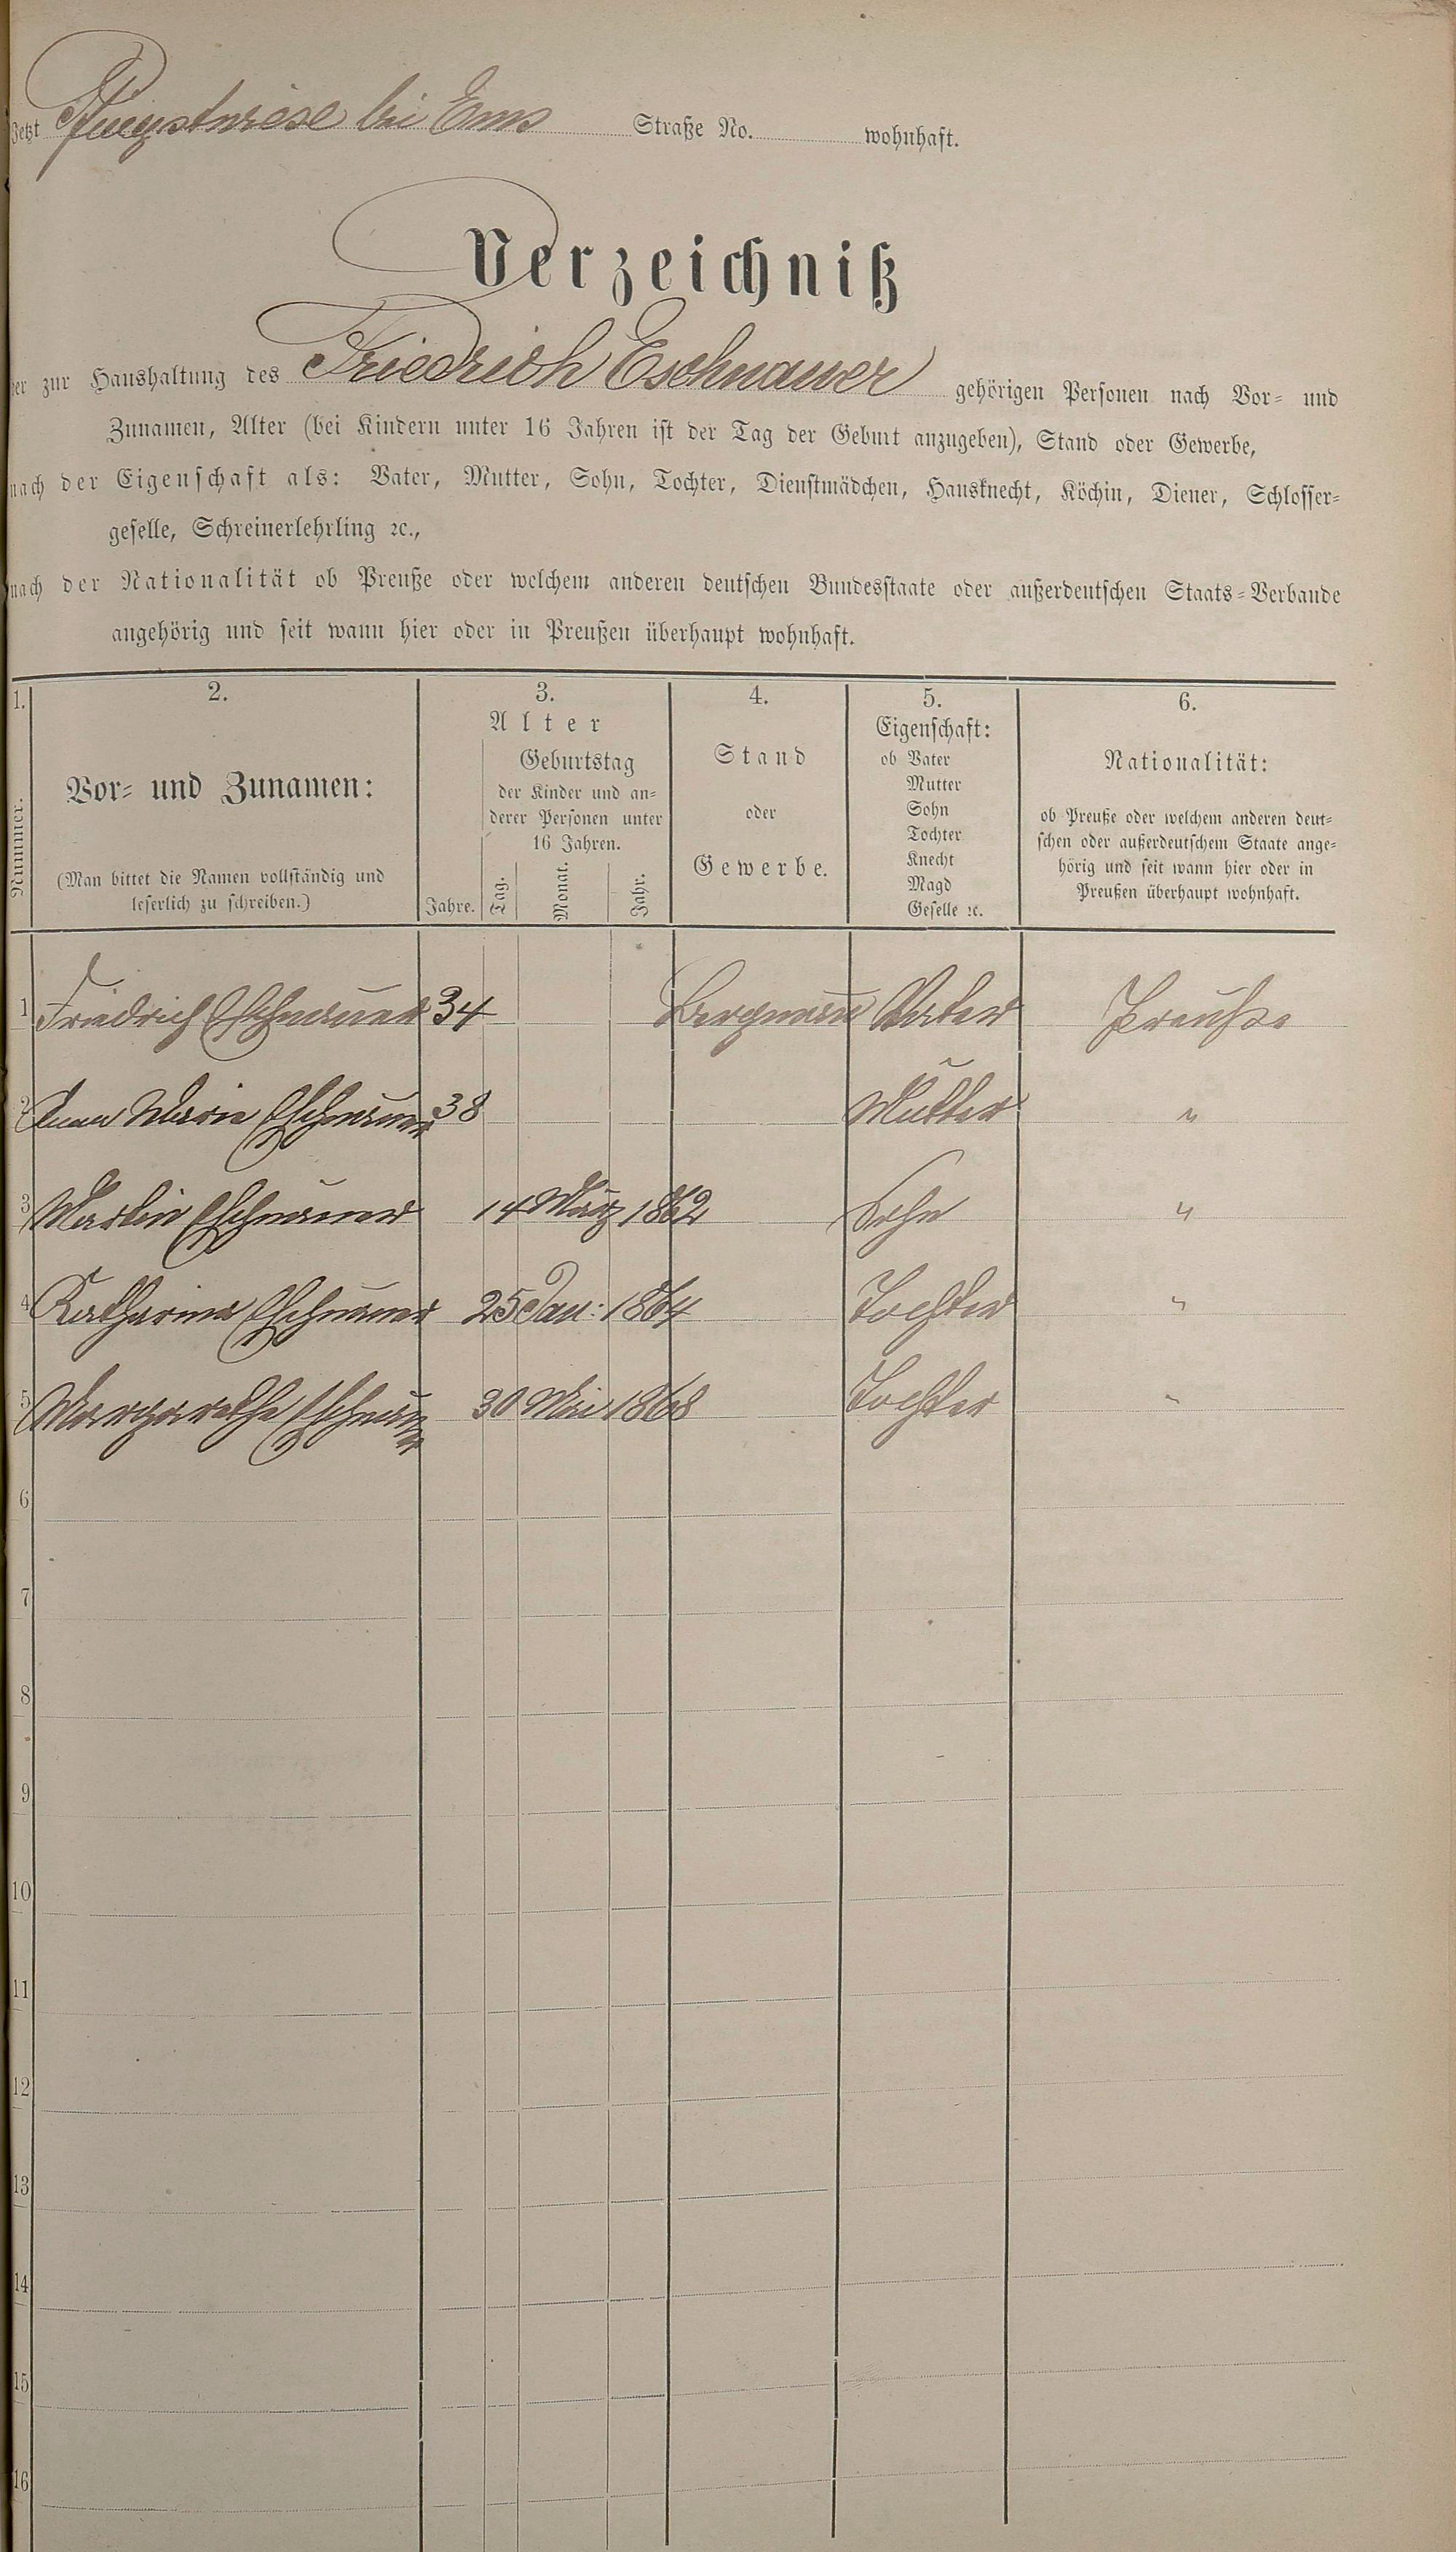 Jetzt Pfingstwiese bei Ems Straße No. wohnhaft.
Verzeichniß
der zur Haushaltung des Friedrich Eschnauer gehörigen Personen nach Vor- und
Zunamen, Alter (bei Kindern unter 16 Jahren ist der Tag der Geburt anzugeben), Stand oder Gewerbe,
nach der Eigenschaft als: Vater, Mutter, Sohn, Tochter, Dienstmädchen, Hausknecht, Köchin, Diener, Schlosser-
geselle, Schreinerlehrling ꝛc.,
nach der Nationalität ob Preuße oder welchem anderen deutschen Bundesstaate oder außerdeutschen Staats-Verbande
angehörig und seit wann hier oder in Preußen überhaupt wohnhaft.
1. 2. 3. 4. 5. 6.
Nummer.
Vor- und Zunamen:
(Man bittet die Namen vollständig und
leserlich zu schreiben.)
Alter
Geburtstag
der Kinder und an-
derer Personen unter
16 Jahren.
Jahre. Tag. Monat. Jahr.
Stand
oder
Gewerbe.
Eigenschaft:
ob Vater
Mutter
Sohn
Tochter
Knecht
Magd
Geselle ꝛc.
Nationalität:
ob Preuße oder welchem anderen deut-
schen oder außerdeutschem Staate ange-
hörig und seit wann hier oder in
Preußen überhaupt wohnhaft.
1 Friedrich Eschnauer 34 Bergmann Vater Preuße
2 Anna Maria Eschnauer 38 Mutter "
3 Martin Eschnauer 14 März 1862 Sohn "
4 Katharina Eschnauer 25 Jan: 1864 Tochter "
5 Margarethe Eschnauer 30 Mai 1868 Tochter "
6
7
8
9
10
11
12
13
14
15
16